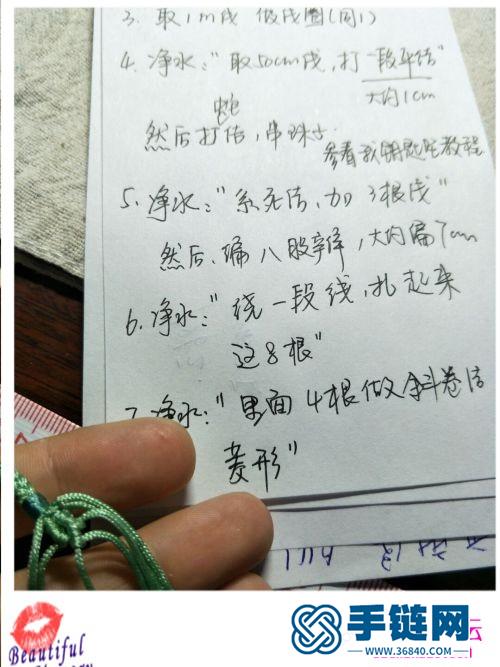 3. 取1m线 做线圈(同1)
4. 净水:“取50cm线,打一段平结”
大约1cm
蛇
然后打结,串珠子.
参看我钥匙包教程
5. 净水:“系死结,加3根线”
然后.编八股辫,大约编7cm
6. 净水:“绕一段线,扎起来
这8根”
7. 净水:“里面4根做斜卷结
菱形”
Beautiful
手链网
www.36840.com